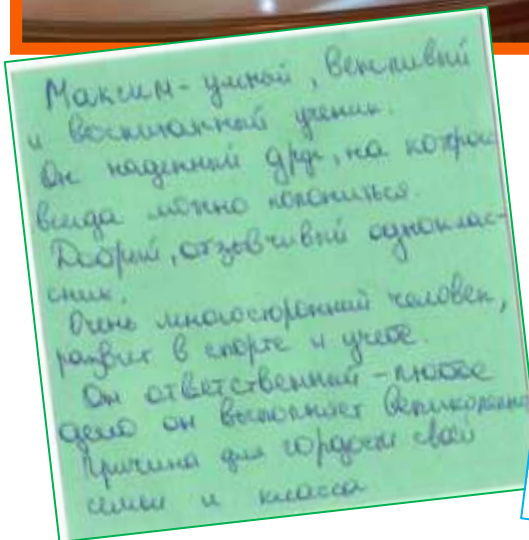 Максим - умный, вежливый
и воспитанный ученик.
Он надежный друг, на которого
всегда можно положиться.
Добрый, отзывчивый одноклас-
сник.
Очень многосторонний человек,
развит в спорте и учебе.
Он ответственный - любое
дело он выполняет великолепно
Причина для гордости своей
семьи и класса